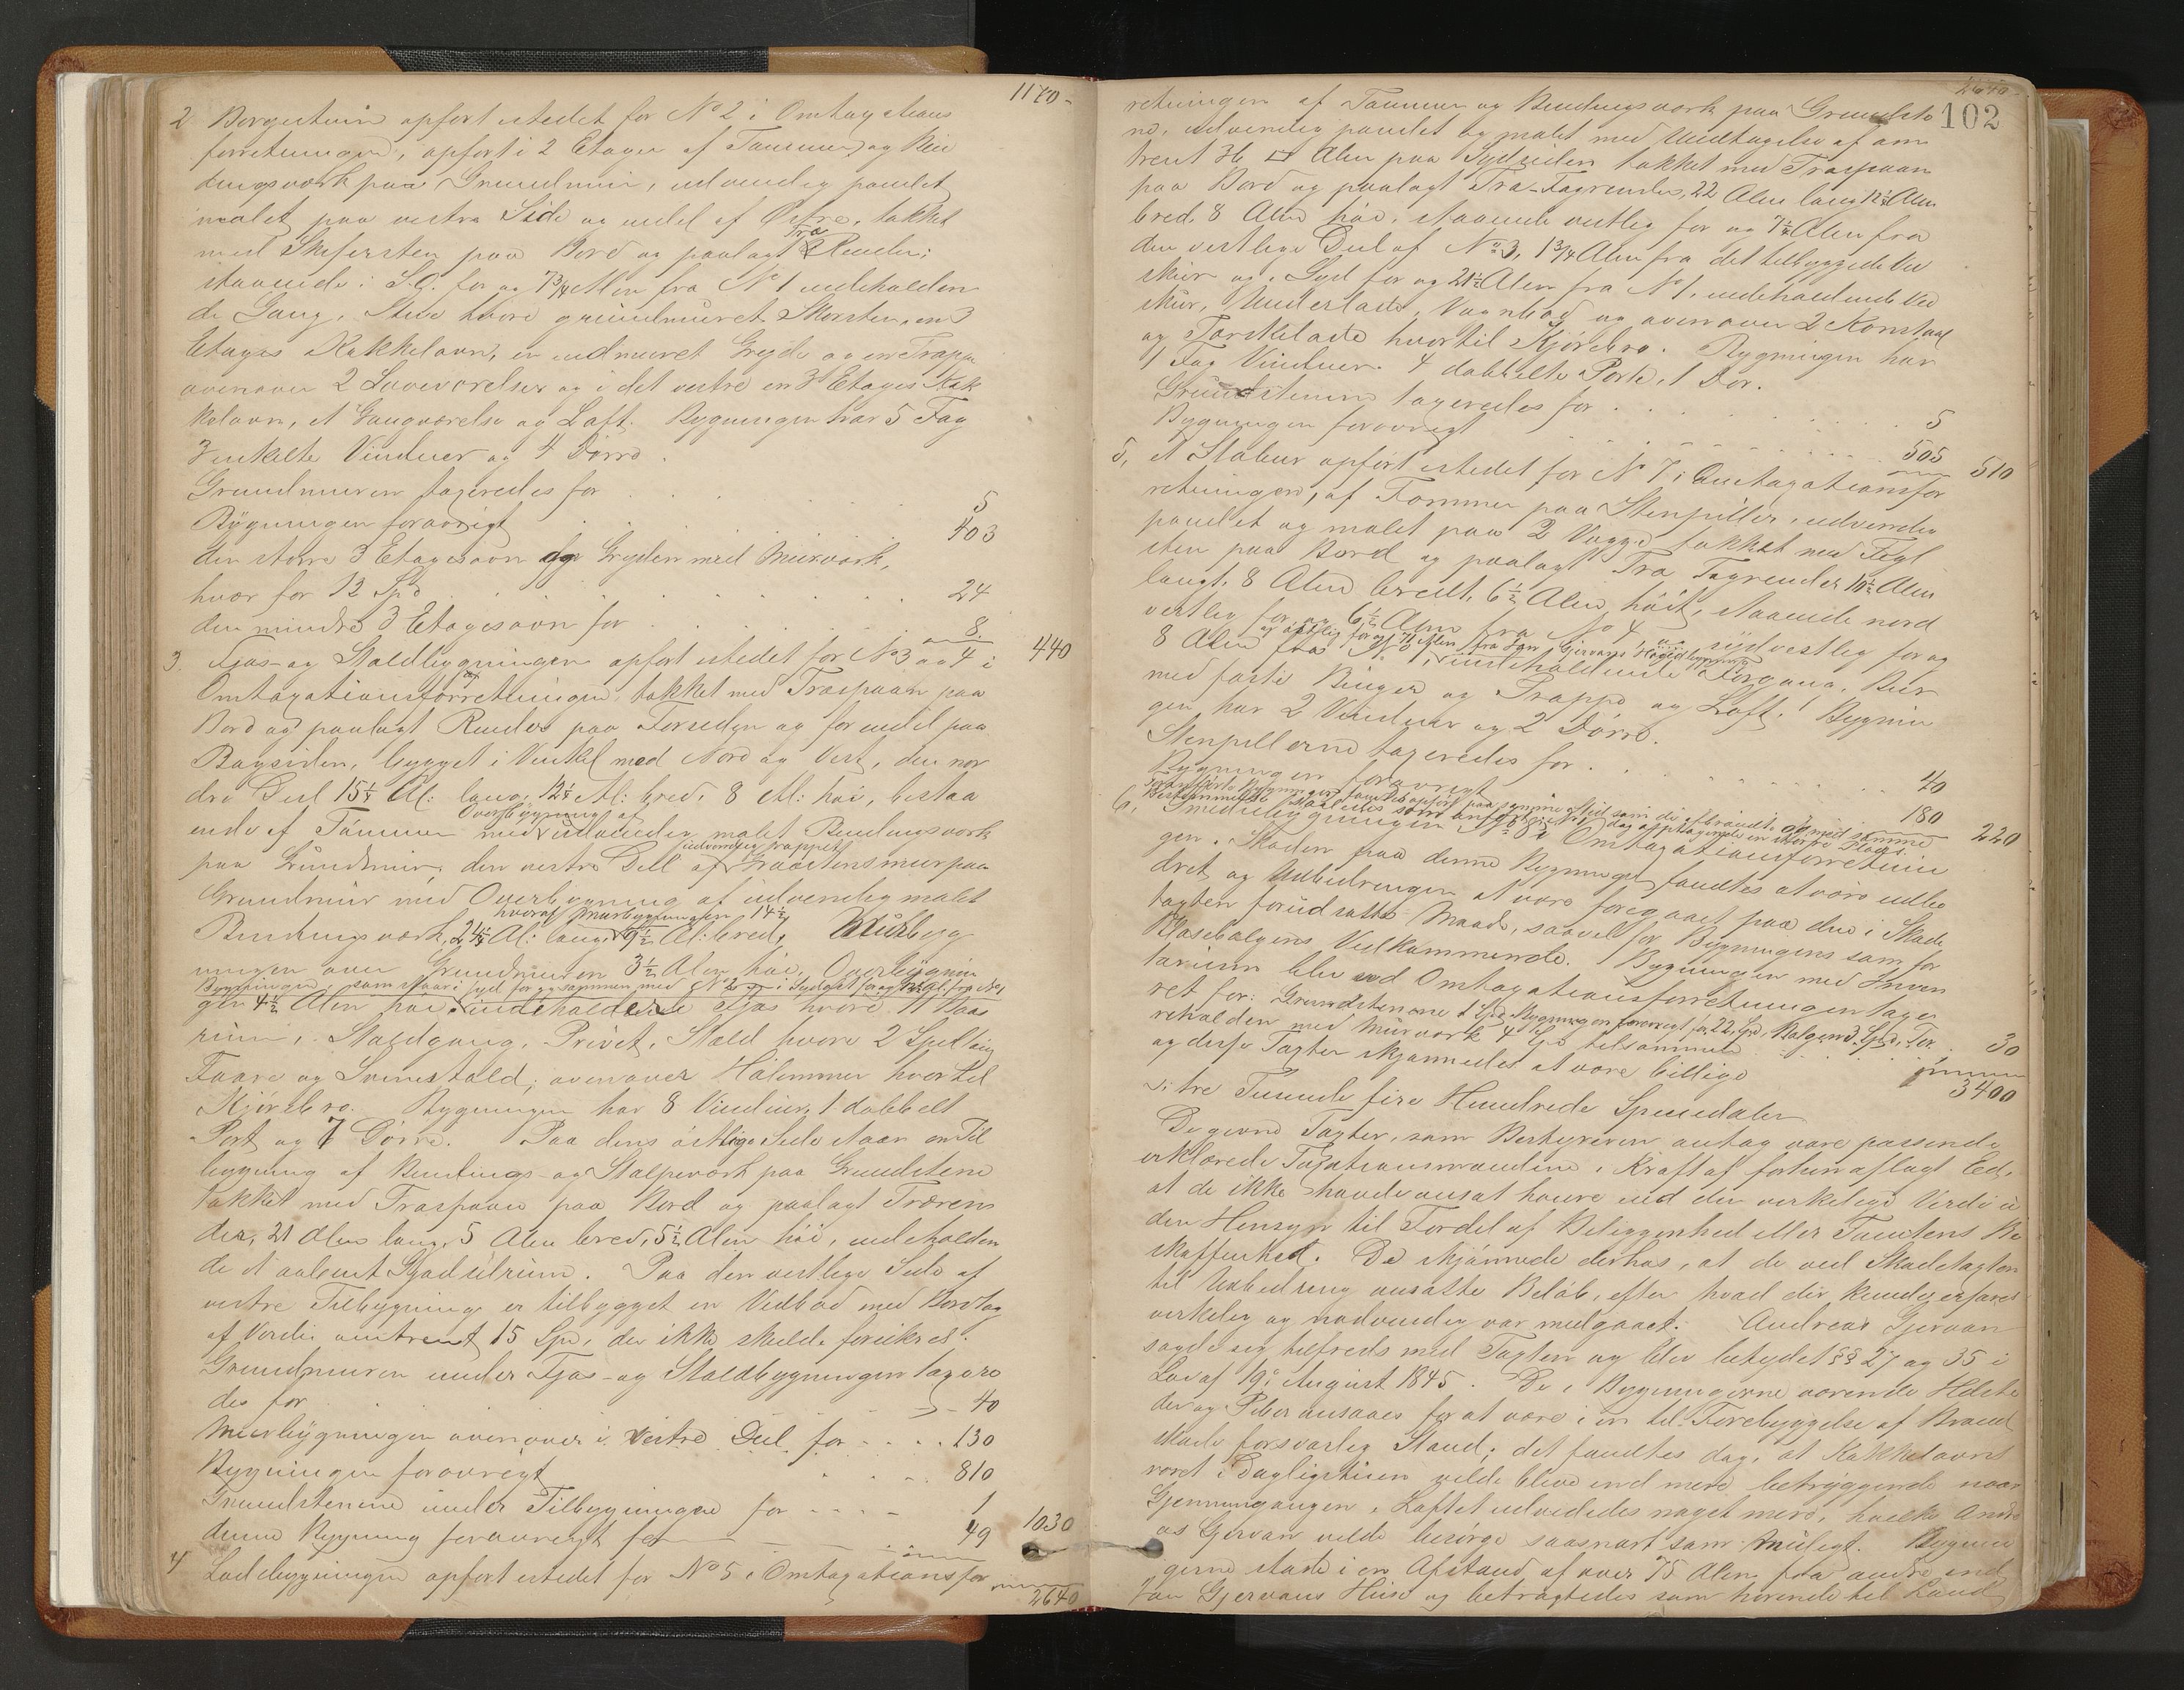 1170-
2 Borgestuen opført istedet for No 2 i Omtaxations
forretningen, opført i 2 Etager af Tømmer og Bin
dingsværk paa Grundmur, udvendig panelet
malet paa vestre Side og endel af Østre, tækket
med Skifersten paa Bord og paalagt Træ Render;
staaende i S.O. for og 7 3/4 Alen fra No 1 indeholden
de Gang, Stue hvori grundmuret Skorsten, en 3
Etages Kakkelovn, en indmuret Gryde og en Trappe
ovenover 2 Soveværelser og i det vestre en 3 Etages Kak
kelovn, et Gangværelse og Loft. Bygningen har 5 Fag
enkelte Vinduer og 4 Dørre.
Grundmuren taxeredes for . . . 5
Bygningen forøvrigt . . . 403
den større 3 Etagesovn og Gryden med Murværk,
hver for 12 Spd . . . 24
den mindre 3 Etagesovn for . . . 8 440
3. Fjøs- og Staldbygningen opført istedet for No 3 og 4 i
Omtaxationsforretningen, tækket med Træspaan paa
Bord og paalagt Render paa Forsiden og for endel paa
Bagsiden, bygget i Vinkel mod Nord og Vest, den nor
dre Deel 15 1/4 Al: lang, 12 1/4 Al: bred, 8 Al: høi, bestaa
Overbygning af
ende af Tømmer med udvendig malet Bindingsværk
udvendig rappet
paa Grundmur, den vestre Deel af Graastensmur paa
Grundmur med Overbygning af udvendig malet
hvoraf Murbygningen 14 1/2
Bindingsværk, 24 1/4 Al: lang 9 1/2 Al: bred, Murbyg
ningen over Grundmuren 3 1/2 Alen høi, Overbygnin
Bygningen, som staar i Syd for og sammen med No 2 og i Sydost for og Al. fra No 1,
gen 4 1/2 Alen høi, indeholdende Fjøs hvori 11 Baas
rum, Staldgang, Privet, Stald hvori 2 Spiltoug
Faare og Svinestald; ovenover Hølemmer hvortil
Kjørebro. Bygningen har 8 Vinduer, 1 dobbelt
Port og 7 Dørre. Paa dens østlige Side staar en Til
bygning af Bindings- og Stolpeværk paa Grundstene
tækket med Træspaan paa Bord og paalagt Træren
der, 21 Alen lang, 5 Alen bred, 5 1/2 Alen høi, indeholden
de et aabent Gjødselrum. Paa den vestlige Side af
vestre Tilbygning er tilbygget en Vedbod med Bordtag
af Værdi omtrent 15 Spd, der ikke skulde forsikres.
Grundmuren under Fjøs- og Staldbygningen taxere
des for . . . 40
Murbygningen ovenover i vestre Deel for . . . 130
Bygningen forøvrigt . . . 810
Grundstenene under Tilbygningen for . . . 1
denne Bygning forøvrigt for . . . 49 1030
4 Ladebygningen opført istedet for No 5 i Omtaxationsfor
2640
2640
102
retningen af Tømmer og Bindingsværk paa Grundste
ne, udvendig panelet og malet med Undtagelse af om
trent 36 □ Alen paa Sydsiden tækket med Træspaan
paa Bord og paalagt Træ-Tagrender, 22 Alen lang 12 1/2 Alen
bred, 8 Alen høi, staaende vestlig for og 7 1/2 Alen fra
den vestlige Deel af No 3, 1 3/4 Alen fra det tilbyggede Ved
skur og i Syd for og 21 1/2 Alen fra No 1, indeholdende Ved
skur, Underlade, Vognbod og ovenover 2 Kornstaal
og Tærskelade hvortil Kjørebro. Bygningen har
1 Fag Vinduer, 4 dobbelte Porte, 1 Dør.
Grundstenene taxeredes for . . . 5
Bygningen forøvrigt . . . 505 510
5, et Stabur opført istedet for No 7 i Omtaxationsfor
retningen, af Tømmer paa Stenpiller, udvendig
panelet og malet paa 2 Vægge, tækket med Tegl
sten paa Bord og paalagt Træ Tagrender 10 1/2 Alen
langt, 8 Alen bredt, 6 1/2 Alen høit, staaende nord
vestlig for og 6 1/2 Alen fra No 4 og sydvestlig for og
8 Alen fra No 1, indeholdende Forgang, Bur
med faste Binger og Trappe og Loft. Bygnin
gen har 2 Vinduer og 2 Dørre.
Stenpillerne taxeredes for . . . 40
Bygningen forøvrigt . . . 180 220
6, Smediebygningen No 8 i Omtaxationsforretnin
gen. Skaden paa denne Bygning fandtes at være udbe
dret og Udbedringen at være foregaaet paa den i Skade
taxten forudsatte Maade, saavel for Bygningens som for
Blæsebælgens Vedkommende. Bygningen med Inven
tarium blev ved Omtaxationsforretningen taxe
ret for: Grundstenene 1 Spd, Bygningen forøvrigt for 22 Spd, Bælgen 3 Spd,
med Murværk 4 Spd tilsammen . . . 30
og disse Taxter skjønnedes at være billige
3400
: tre Tusinde fire Hundrede Speciedaler
De givne Taxter, som Bestyreren antog være passende
erklærede Taxationsmændene i Kraft af forhen aflagt Ed,
at de ikke havde ansat høiere end den virkelige Værdi u
den Hensyn til Fordel af Beliggenhed eller Tomtens Be
skaffenhed. De skjønnede derhos, at de ved Skadetaxten
til Udbedring ansatte Beløb, efter hvad der kunde erfares
virkelig og nødvendig var medgaaet. Andreas Gjervan
sagde sig tilfreds med Taxten og blev betydet §§ 27 og 35 i
Lov af 19de August 1845. De i Bygningerne værende Ildste
der og Piber ansaaes for at være i en til Forebyggelse af Brand
skade forsvarlig Stand; det fandtes dog, at Kakkelovns
røret i Dagligstuen vilde blive end mere betryggende naar
Gjennemgangen i Loftet udvidedes noget mere, hvilke Andre
as Gjervan vilde besørge saasnart som muligt. Bygnin
gerne staae i en Afstand af over 75 Alen fra andre end
Jan Gjervans Huse og betragtedes som hørende til Land